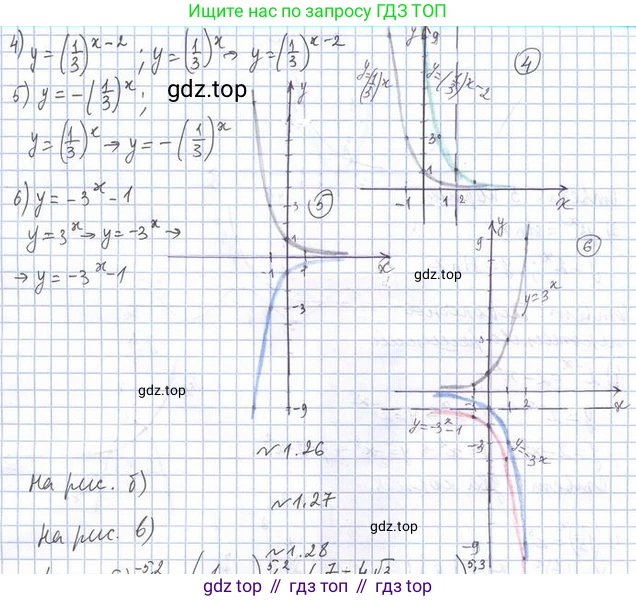 Ищите нас по запросу ГДЗ ТОП
4) y = (1/3)^(x-2) ; y = (1/3)^x → y = (1/3)^(x-2)
5) y = -(1/3)^x ;
y = (1/3)^x → y = -(1/3)^x
6) y = -3^x - 1
y = 3^x → y = -3^x →
→ y = -3^x - 1
gdz.top
y
9
4
y=(1/3)^x
y=(1/3)^x-2
3
1
-1
1
2
x
y
5
3
1
-1
1
x
-3
-9
y
6
9
y=3^x
3
gdz.top
-1
1
2
x
y=-3^x-1
-3
y=-3^x
-9
gdz.top
№1.26
На рис. б)
№1.27
На рис. в)
gdz.top
№1.28
-5,2
5,2
7 - 4√3
5,3
gdz.top // гдз.топ // гдз.top